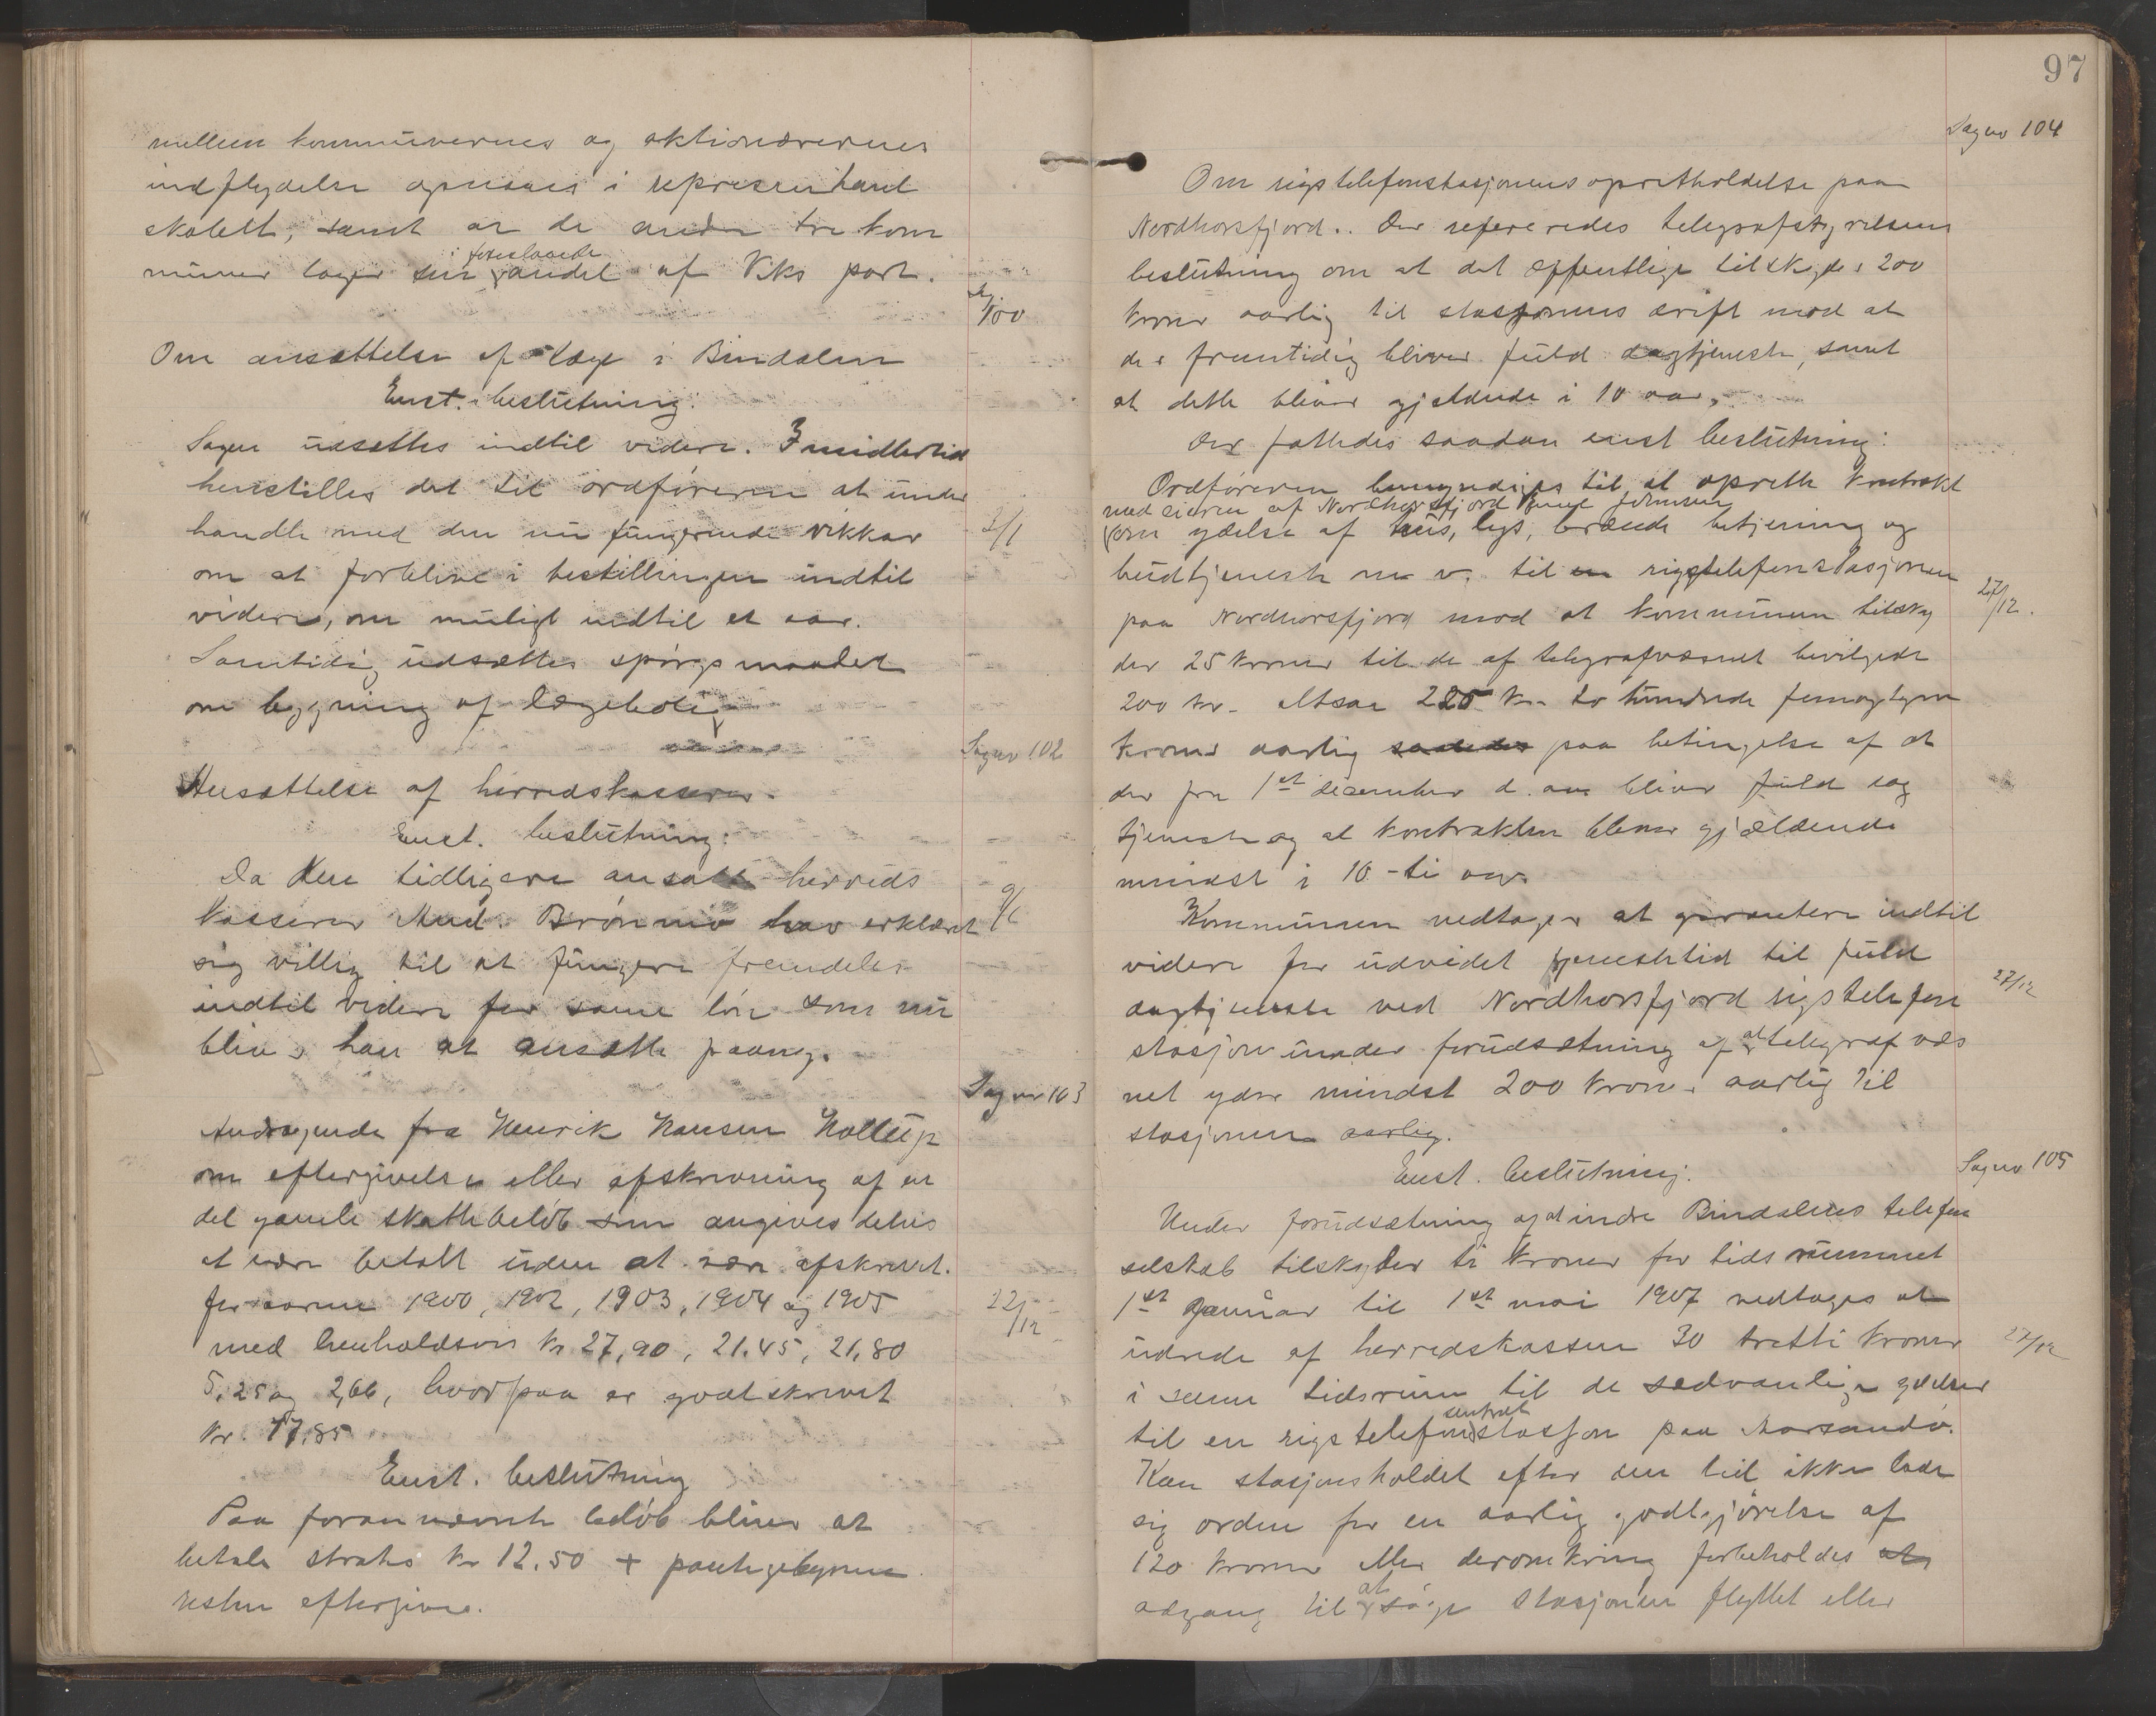 mellem kommunernes og aktionærernes
indflydelse opnaaes i representant
skabet, samt at de andre tre kom
muner tager sin foreslaaede andel af Viks part.
100
Om ansættelse af læge i Bindalen
Enst. beslutning:
Sagen udsættes indtil videre. Imidlertid
henstilles det til ordføreren at under
handle med den nu fungerende vikkar
2/1
om at forblive i bestillingen indtil
videre, om muligt indtil et aar.
Samtidig udsættes spørgsmaalet
om bygning af lægebolig
Sag nr 102
Ansættelse af herredskasserer.
Enst. beslutning:
Da den tidligere ansatte herreds
kasserer And. Brønmo har erklæret
9/1
sig villig til at fungere fremdeles
indtil videre for samme løn som nu
bliver han at ansætte paany.
Sag nr 103
Andragende fra Henrik Hansen Holtup
om eftergivelse eller afskrivning af en
del gamle skattebeløb som angives delvis
at være betalt uden at være afskrevet.
for aarene 1900, 1902, 1903, 1904 og 1905
22/12
med henholdsvis kr 27,90, 21.45, 21,80
5,25 og 2,66, hvorpaa er godtskrevet
kr. 17,85
Enst. beslutning
Paa forannævnte beløb bliver at
betale straks kr 12.50 + pantegebyrene
resten eftergives.
97
Sag nr 104
Om rigstelefonstasjonens opretholdelse paa
Nordhorsfjord.. Der refereredes telegrafstyrelsens
beslutning om at det offentlige tilskyder 200
kroner aarlig til stasjonens drift mod at
der fremtidig bliver fuld dagtjeneste, samt
at dette bliver gjeldende i 10 aar.
Der fattedes saadan enst beslutning:
Ordføreren bemyndiges til at oprette kontrakt
med eieren af Nordhorsfjord Johnsen
om ydelse af hus, lys, brænde betjening og
budtjeneste m v. til en rigstelefonstasjonen
27/12.
paa Nordhorsfjord mod at kommunen tilsky
der 25 kroner til de af telegrafvæsenet bevilgede
200 kr. altsaa 225 kr. to hundrede femogtyve
kroner aarlig saaledes paa betingelse af at
der fra 1st december d. aar bliver fuld dag
tjeneste og at kontrakten bliver gjældende
mindst i 10 - ti aar.
Kommunen vedtager at garantere indtil
videre for udvidet tjenestetid til fuld
dagtjeneste ved Nordhorsfjord rigstelefon
27/12
stasjon under forudsætning af at telegrafvæs
net yder mindst 200 kroner aarlig til
stasjonen aarlig.
Enst. beslutning.
Sag nr 105
Under forudsætning af at indre Bindalens telefon
selskab tilskyder ti kroner for tidsrummet
1st Januar til 1st mai 1907 vedtages at
udrede af herredskassen 30 tretti kroner
27/12
i samme tidsrum til de sedvanlige ydelser
til en rigstelefon sentral stasjon paa
Kan stasjonsholdet efter den tid ikke lade
sig ordne for en aarlig godtgjørelse af
120 kroner eller deromkring forbeholdes at
adgang til at søge stasjonen flyttet eller